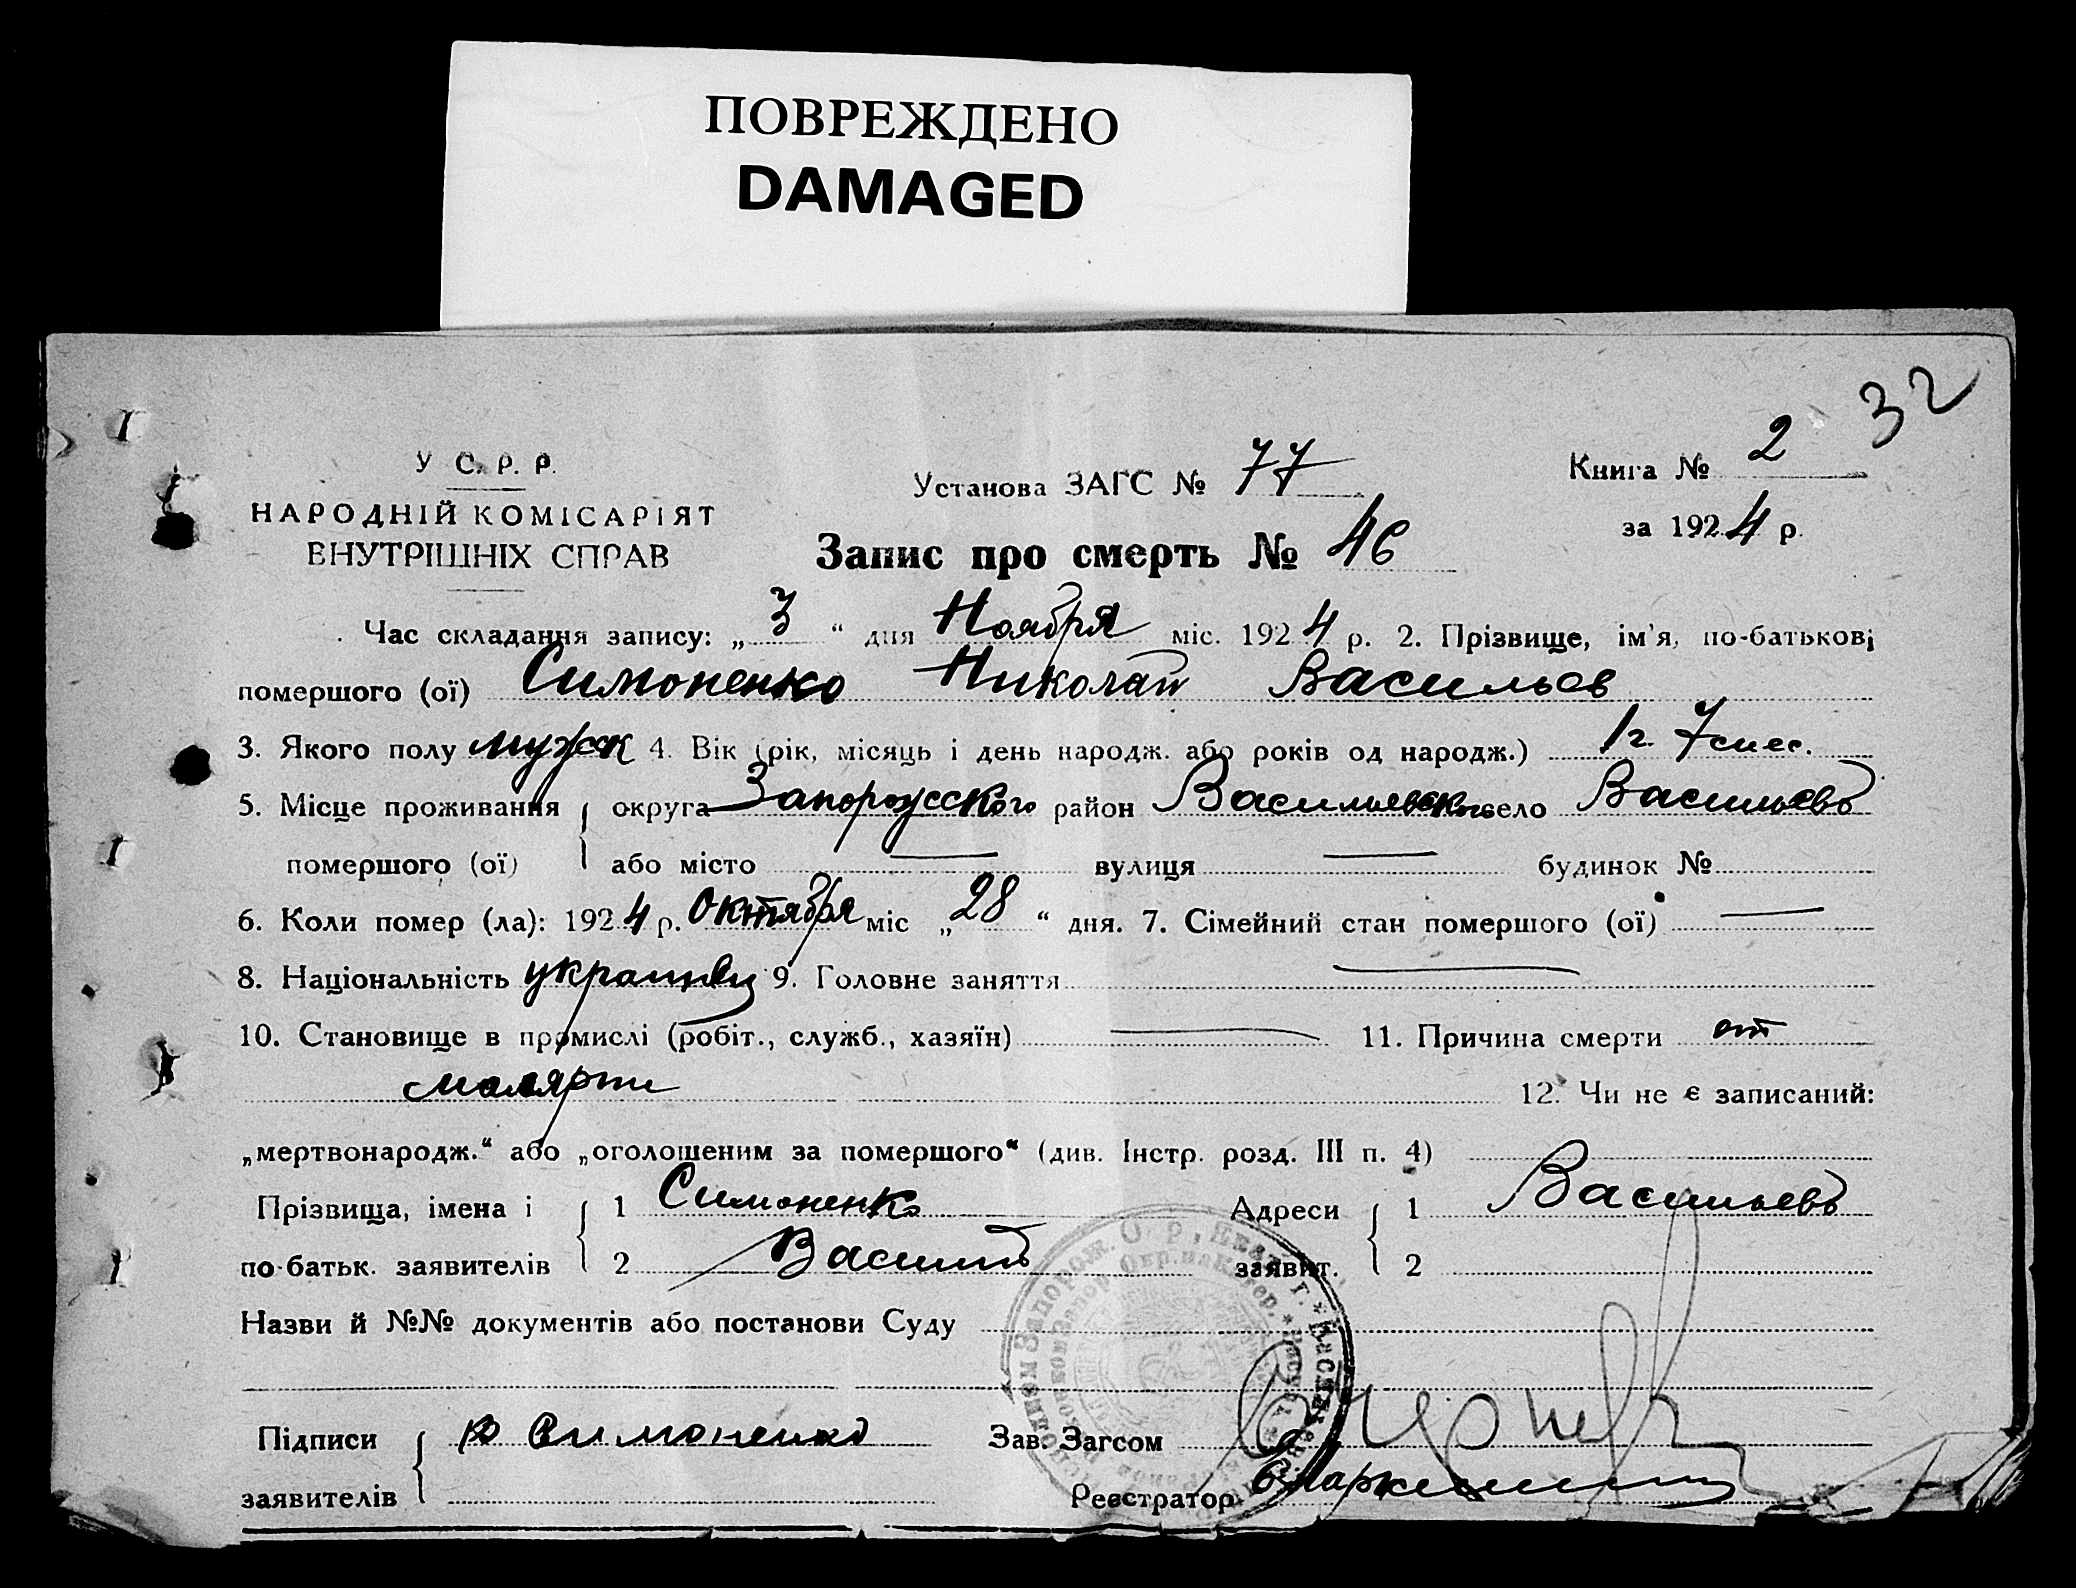 ПОВРЕЖДЕНО
DAMAGED
32
У С. Р. Р.
НАРОДНІЙ КОМІСАРІЯТ
ВНУТРІШНІХ СПРАВ
Установа ЗАГС № 77
Книга № 2
за 1924 р.
Запис про смерть № 46
Час складання запису: „3“ дня Ноября міс. 1924 р. 2. Прізвище, ім'я, по-батькові
помершого (ої) Симоненко Николай Васильев
3. Якого полу мужск 4. Вік (рік, місяць і день народж. або років од народж.) 1 г. 7 мес.
5. Місце проживання округа Запорожского район Васильевского село Васильевка
помершого (ої) або місто — вулиця — будинок №
6. Коли помер (ла): 1924 р. Октября міс „28“ дня. 7. Сімейний стан помершого (ої) —
8. Національність 9. Головне заняття —
10. Становище в промислі (робіт., служб., хазяїн) — 11. Причина смерти от
малярии
12. Чи не є записаний:
„мертвонародж.“ або „оголошеним за помершого“ (див. Інстр. розд. III п. 4)
Прізвища, імена і 1 Симоненко Адреси 1 Васильевка
по-батьк. заявителів 2 Василий заявит. 2
Назви й №№ документів або постанови Суду
Підписи Симоненко Зав. Загсом
заявителів Реєстратор